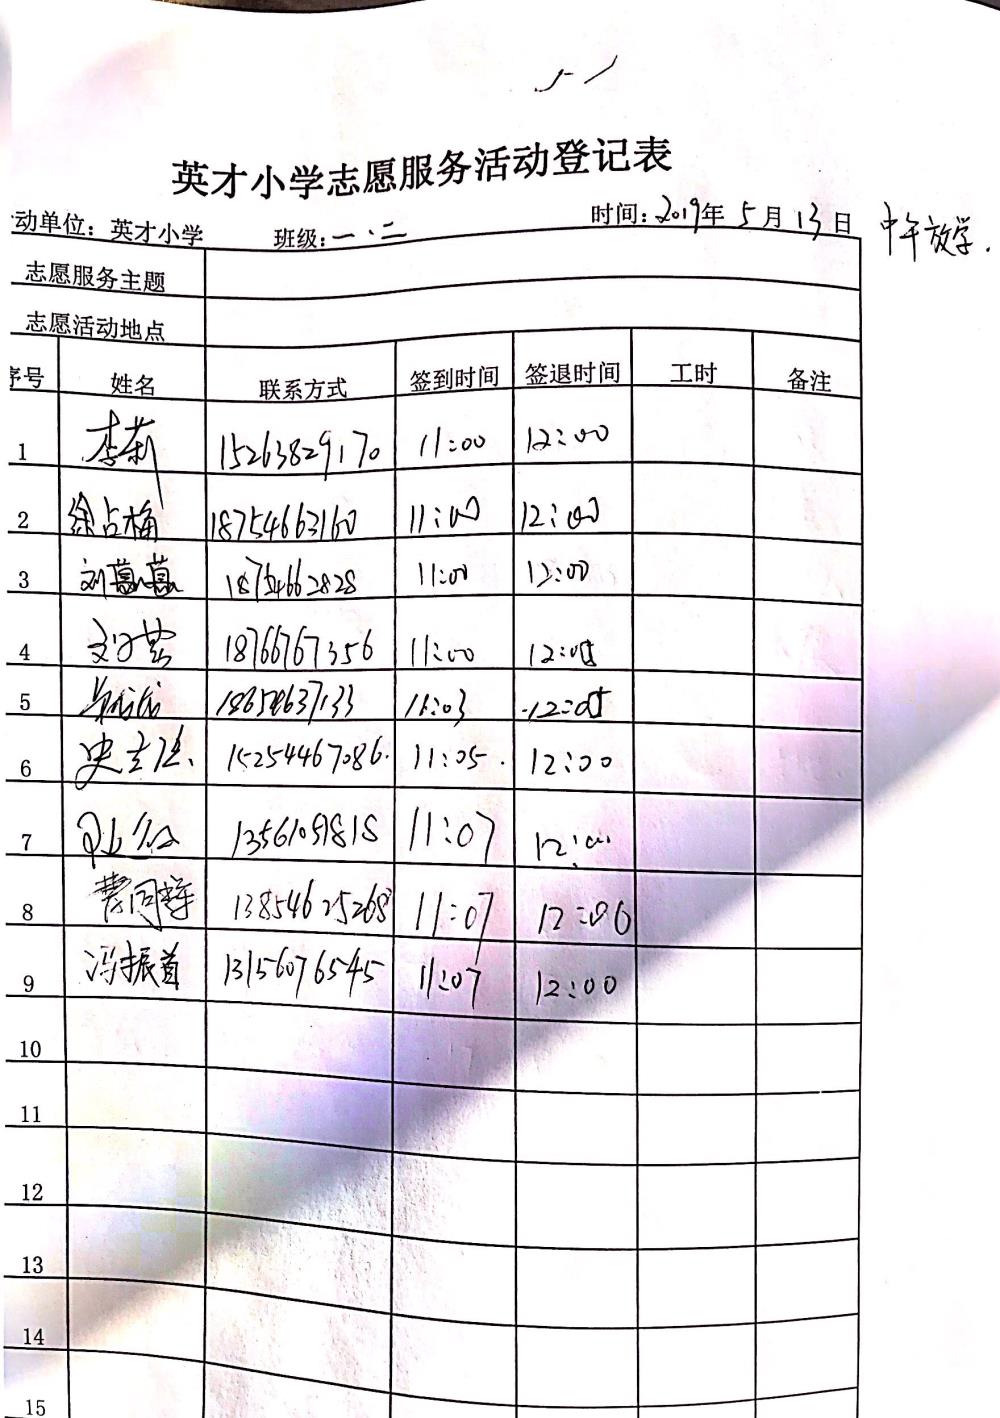 英才小学志愿服务活动登记表
动单位：英才小学 班级：一.二 时间：2019年5月13日 中午放学.
志愿服务主题
志愿活动地点
序号 姓名 联系方式 签到时间 签退时间 工时 备注
1 李莉 15263829170 11:00 12:00
2 徐占梅 18754663160 11:00 12:00
3 18754662828 11:00 12:00
4 18766767356 11:00 12:05
5 11:03 12:05
6 15254467086. 11:05. 12:00
7 11:07 12:00
8 曹同辉 13854625268 11:07 12:00
9 冯振首 13156076545 11:07 12:00
10
11
12
13
14
15